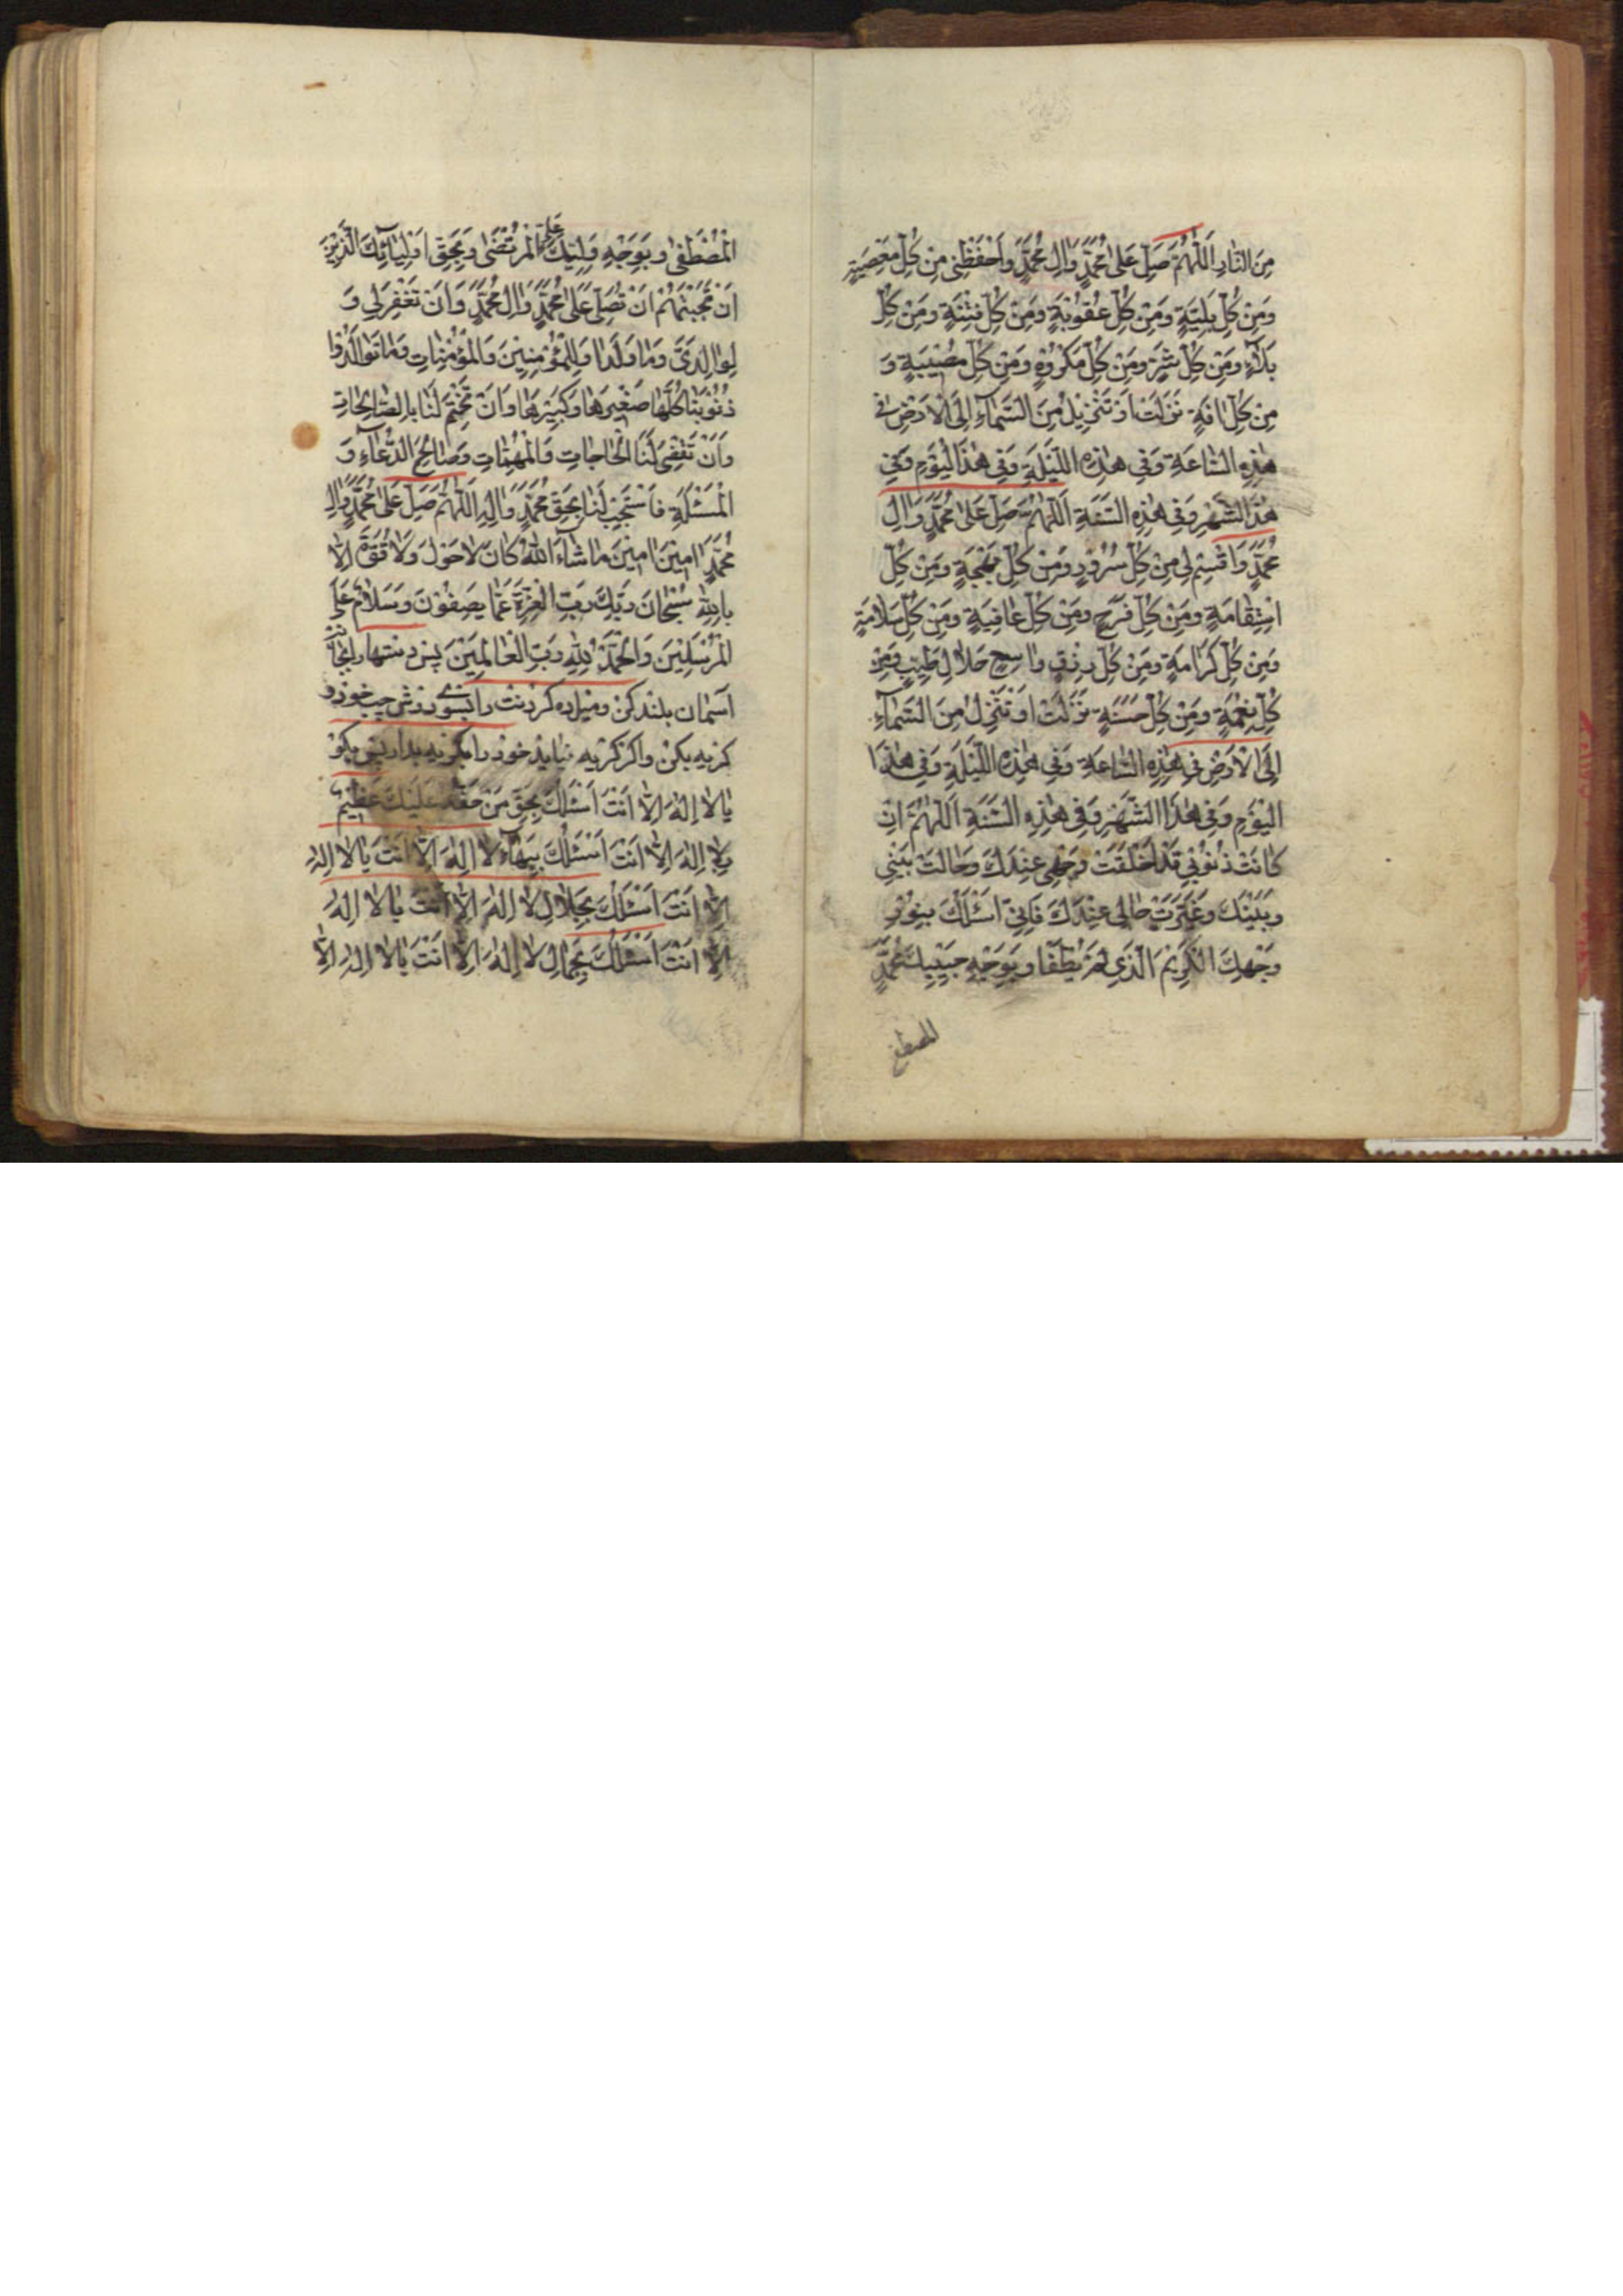 مِنَ النّٰارِ اَللّٰهُمَّ صَلِّ عَلىٰ مُحَمَّدٍ وَاٰلِ مُحَمَّدٍ وَاحْفَظْنِی مِنْ کُلِّ مَعْصِیَةٍ
وَمِنْ کُلِّ بَلِیَّةٍ وَمِنْ کُلِّ عُقُوبَةٍ وَمِنْ کُلِّ فِتْنَةٍ وَمِنْ کُلِّ
بَلٰآءٍ وَمِنْ کُلِّ شَرٍّ وَمِنْ کُلِّ مَکْرُوهٍ وَمِنْ کُلِّ مُصِیْبَةٍ وَ
مِنْ کُلِّ اٰفَةٍ نَزَلَتْ اَوْ تَنْزِیلُ مِنَ السَّمٰآءِ اِلَی الْاَرْضِ فی
هٰذِهِ السّٰاعَةِ وَفِی هٰذِهِ اللَّیْلَةِ وَفِی هٰذَا لْیَوْمِ وَفِی
هٰذَا الشَّهْرِ وَفِی هٰذِهِ السَّنَةِ اَللّٰهُمَّ صَلِّ عَلىٰ مُحَمَّدٍ وَاٰلِ
مُحَمَّدٍ وَاقْسِمْ لِی مِنْ کُلِّ سُرُورٍ وَمِنْ کُلِّ بَهْجَةٍ وَمِنْ کُلِّ
اسْتِقٰامَةٍ وَمِنْ کُلِّ فَرَجٍ وَمِنْ کُلِّ عٰافِیَةٍ وَمِنْ کُلِّ سَلٰامَةٍ
وَمِنْ کُلِّ کَرٰامَةٍ وَمِنْ کُلِّ رِزْقٍ وٰاسِعٍ حَلٰالٍ طَیِّبٍ وَمِنْ
کُلِّ نِعْمَةٍ وَمِنْ کُلِّ حَسَنَةٍ نَزَلَتْ اَوْ تَنْزِلُ مِنَ السَّمٰآءِ
اِلَی الْاَرْضِ فِی هٰذِهِ السّٰاعَةِ وَفِی هٰذِهِ اللَّیْلَةِ وَفِی هٰذَا
الْیَوْمِ وَفِی هٰذَا الشَّهْرِ وَفِی هٰذِهِ السَّنَةِ اَللّٰهُمَّ اِنْ
کٰانَتْ ذُنُوْبِی قَدْ اَخْلَقَتْ وَجْهِی عِنْدَكَ وَحٰالَتْ بَیْنِی
وَبَیْنَكَ وَغَیَّرَتْ حٰالِی عِنْدَكَ فَاِنِّی اَسْئَلُكَ بِنُورِ
وَجْهِكَ الْکَرِیْمِ الَّذِی لَمْ یُطْفَا وَبِوَجْهِ حَبِیْبِكَ مُحَمَّدٍ
المصطفی
الْمُصْطَفىٰ وَبِوَجْهِ وَلِیِّكَ عَلِیٍّ الْمُرْتَضٰی وَبِحَقِّ اَوْلِیٰآئِكَ الَّذِیْنَ
انْتَجَبْتَهُمْ اَنْ تُصَلِّیَ عَلىٰ مُحَمَّدٍ وَاٰلِ مُحَمَّدٍ وَاَنْ تَغْفِرَ لِی وَ
لِوٰالِدَیَّ وَمٰا وَلَدٰا وَلِلْمُؤْمِنِیْنَ وَالْمُؤْمِنٰاتِ وَمٰا تَوٰالَدُوْا
ذُنُوْبَنٰا کُلَّهٰا صَغِیْرَهٰا وَکَبِیْرَهٰا وَاَنْ تَخْتِمَ لَنٰا بِالصّٰالِحٰاتِ
وَاَنْ تَقْضِیَ لَنَا الْحٰاجٰاتِ وَالْمُهِمّٰاتِ وَصٰالِحَ الدُّعٰآءِ وَ
الْمَسْئَلَةِ فَاسْتَجِبْ لَنٰا بِحَقِّ مُحَمَّدٍ وَاٰلِهِ اَللّٰهُمَّ صَلِّ عَلىٰ مُحَمَّدٍ وَاٰلِ
مُحَمَّدٍ اٰمِیْنَ اٰمِیْنَ مٰا شٰآءَ اللّٰهُ کٰانَ لٰا حَوْلَ وَلٰا قُوَّةَ اِلّٰا
بِاللّٰهِ سُبْحٰانَ رَبِّكَ رَبِّ الْعِزَّةِ عَمّٰا یَصِفُوْنَ وَسَلٰامٌ عَلَی
الْمُرْسَلِیْنَ وَالْحَمْدُ لِلّٰهِ رَبِّ الْعٰالَمِیْنَ پس دستها را بجانب
آسمان بلند کن و میل ده کردنت را بسوی دوش چپ خود و
کریه بکن و اکر کریه نیاید خود را بکریه بدار پس بکو
یٰا لٰا اِلٰهَ اِلّٰا اَنْتَ اَسْئَلُكَ بِحَقِّ مَنْ حَقُّهُ عَلَیْكَ عَظِیْمٌ
بِلٰا اِلٰهَ اِلّٰا اَنْتَ اَسْئَلُكَ بِبَهٰآءِ لٰا اِلٰهَ اِلّٰا اَنْتَ یٰا لٰا اِلٰهَ
اِلّٰا اَنْتَ اَسْئَلُكَ بِجَلٰالِ لٰا اِلٰهَ اِلّٰا اَنْتَ یٰا لٰا اِلٰهَ
اِلّٰا اَنْتَ اَسْئَلُكَ بِجَمٰالِ لٰا اِلٰهَ اِلّٰا اَنْتَ یٰا لٰا اِلٰهَ اِلّٰا